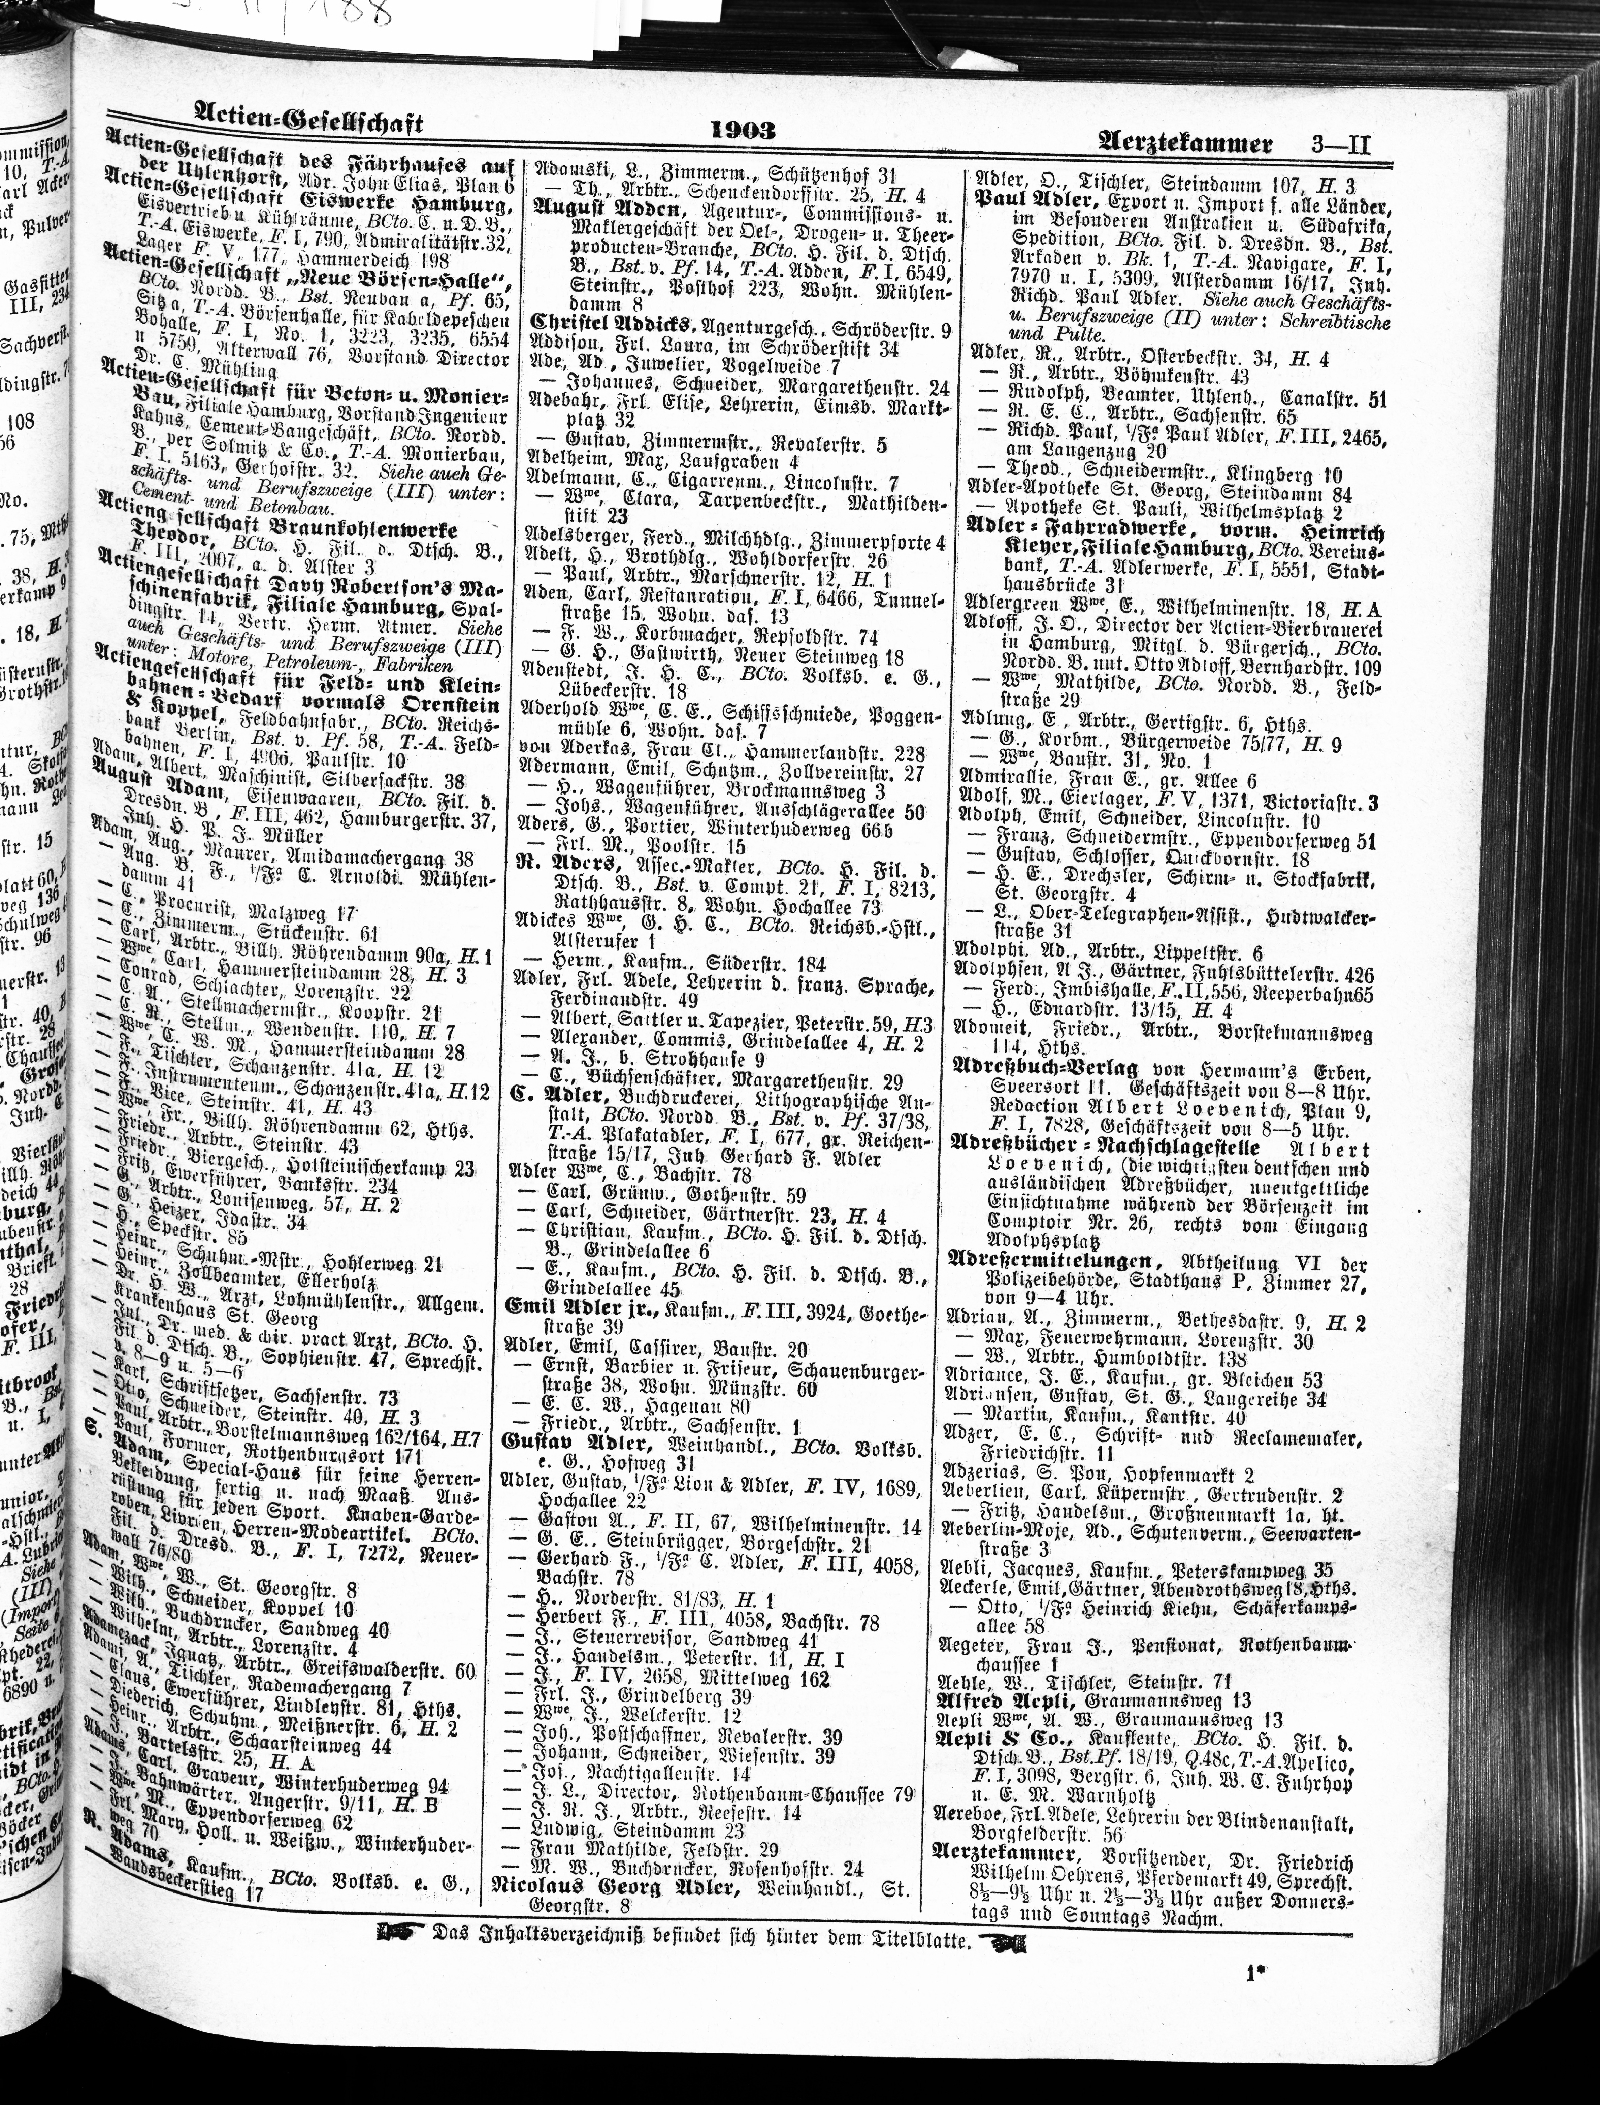 Actien-Gesellschaft
1903
Aerztekammer 3—II
Actien-Gesellschaft des Fährhauses auf
der Uhlenhorst, Adr. John Elias, Plan 6
Actien-Gesellschaft Eiswerke Hamburg,
Eisvertrieb u. Kühlräume, BCto. C. u. D. B.,
T.-A. Eiswerke, F. I, 790, Admiralitätstr. 32,
Lager F. V, 177, Hammerdeich 198
Actien-Gesellschaft „Neue Börsen-Halle“,
BCto. Nordd. B., Bst. Neubau a, Pf. 65,
Sitz a, T.-A. Börsenhalle, für Kabeldepeschen
Bohalle, F. I, No. 1, 3223, 3235, 6554
u 5750, Alterwall 76, Vorstand Director
Dr. C. Mühling
Actien-Gesellschaft für Beton- u. Monier-
Bau, Filiale Hamburg, Vorstand Ingenieur
Kahus, Cement-Baugeschäft, BCto. Nordd.
B., per Solmitz & Co., T.-A. Monierbau,
F. I. 5163, Gerhofstr. 32. Siehe auch Ge-
schäfts- und Berufszweige (III) unter:
Cement- und Betonbau.
Actieng sellschaft Braunkohlenwerke
Theodor, BCto. H. Fil. d. Dtsch. B.,
F. III, 2007, a. d. Alster 3
Actiengesellschaft Davy Robertson's Ma-
schinenfabrik, Filiale Hamburg, Spal-
dingstr. 14, Vertr. Herm. Atmer. Siehe
auch Geschäfts- und Berufszweige (III)
unter: Motore, Petroleum-, Fabriken
Actiengesellschaft für Feld- und Klein-
bahnen-Bedarf vormals Orenstein
& Koppel, Feldbahnfabr., BCto. Reichs-
bank Berlin, Bst. v. Pf. 58, T.-A. Feld-
bahnen, F. I, 4906, Paulstr. 10
Adam, Albert, Maschinist, Silbersackstr. 38
August Adam, Eisenwaaren, BCto. Fil. d.
Dresdn. B., F. III, 462, Hamburgerstr. 37,
Inh. H. P. J. Müller
Adam, Aug., Maurer, Amidamachergang 38
— Aug. B. F., i/Fa C. Arnoldi, Mühlen-
damm 41
— C., Procurist, Malzweg 17
— C., Zimmerm., Stückenstr. 61
— Carl, Arbtr., Billh. Röhrendamm 90a, H. 1
— Wwe, Carl, Hammersteindamm 28, H. 3
— Conrad, Schlachter, Lorenzstr. 22
— C. A., Stellmachermstr., Koopstr. 21
— C. R., Stellm., Wendenstr. 110, H. 7
— Wwe, C. W. M., Hammersteindamm 28
— F., Tischler, Schanzenstr. 41a, H. 12
— F., Instrumentenm., Schanzenstr. 41a, H. 12
— F., Vice, Steinstr. 41, H. 43
— Wwe, Fr., Billh. Röhrendamm 62, Hths.
— Friedr., Arbtr., Steinstr. 43
— Friedr., Biergesch., Holsteinischerkamp 23
— Fritz, Ewerführer, Banksstr. 234
— G., Arbtr., Louisenweg, 57, H. 2
— G., Heizer, Idastr. 34
— H., Speckstr. 85
— Heinr., Schuhm.-Mstr., Hohlerweg 21
— Heinr., Zollbeamter, Ellerholz
— Dr. H. W., Arzt, Lohmühlenstr., Allgem.
Krankenhaus St. Georg
— Jul., Dr. med. & chir. pract Arzt, BCto. H.
Fil. d. Dtsch. B., Sophienstr. 47, Sprechst.
v. 8—9 u. 5—6
— Karl, Schriftsetzer, Sachsenstr. 73
— Otto, Schneider, Steinstr. 40, H. 3
— Paul, Arbtr., Borstelmannsweg 162/164, H. 7
— Paul, Former, Rothenburgsort 171
S. Adam, Special-Haus für feine Herren-
Bekleidung, fertig u. nach Maaß. Aus-
rüstung für jeden Sport. Knaben-Garde-
roben, Livreen, Herren-Modeartikel. BCto.
Fil. d. Dresd. B., F. I, 7272, Neuer-
wall 76/80
Adam, Wwe, W., St. Georgstr. 8
— Wilh., Schneider, Koppel 10
— Wilh., Buchdrucker, Sandweg 40
— Wilhelm, Arbtr., Lorenzstr. 4
Adamczack, Ignatz, Arbtr., Greifswalderstr. 60
Adami, A., Tischler, Rademachergang 7
— Claus, Ewerführer, Lindleystr. 81, Hths.
— Diederich, Schuhm., Meißnerstr. 6, H. 2
— Heinr., Arbtr., Schaarsteinweg 44
— J., Bartelsstr. 25, H. A
Adams, Carl, Graveur, Winterhuderweg 94
— J., Bahnwärter, Angerstr. 9/11, H. B
— Wwe, M., Eppendorferweg 62
— Frl. Mary, Holl. u. Weißw., Winterhuder-
weg 70
R. Adams, Kaufm., BCto. Volksb. e. G.,
Wandsbeckerstieg 17
Adamski, L., Zimmerm., Schützenhof 31
— Th., Arbtr., Schenckendorffstr. 25, H. 4
August Adden, Agentur-, Commissions- u.
Maklergeschäft der Oel-, Drogen- u. Theer-
producten-Branche, BCto. H. Fil. d. Dtsch.
B., Bst. v. Pf. 14, T.-A. Adden, F. I, 6549,
Steinstr., Posthof 223, Wohn. Mühlen-
damm 8
Christel Addicks, Agenturgesch., Schröderstr. 9
Addison, Frl. Laura, im Schröderstift 34
Ade, Ad., Juwelier, Vogelweide 7
— Johannes, Schneider, Margarethenstr. 24
Adebahr, Frl. Elise, Lehrerin, Eimsb. Markt-
platz 32
— Gustav, Zimmermstr., Revalerstr. 5
Adelheim, Max, Laufgraben 4
Adelmann, C., Cigarrenm., Lincolnstr. 7
— Wwe, Clara, Tarpenbeckstr., Mathilden-
stift 23
Adelsberger, Ferd., Milchhdlg., Zimmerpforte 4
Adelt, H., Brothdlg., Wohldorferstr. 26
— Paul, Arbtr., Marschnerstr. 12, H. 1
Aden, Carl, Restauration, F. I, 6466, Tunnel-
straße 15, Wohn. das. 13
— F. W., Korbmacher, Repsoldstr. 74
— G. H., Gastwirth, Neuer Steinweg 18
Adenstedt, J. H. C., BCto. Volksb. e. G.,
Lübeckerstr. 18
Aderhold Wwe, C. E., Schiffsschmiede, Poggen-
mühle 6, Wohn. das. 7
von Aderkas, Frau Cl., Hammerlandstr. 228
Adermann, Emil, Schutzm., Zollvereinstr. 27
— H., Wagenführer, Brockmannsweg 3
— Johs., Wagenführer, Ausschlägerallee 50
Aders, G., Portier, Winterhuderweg 66b
— Frl. M., Poolstr. 15
R. Aders, Assec.-Makler, BCto. H. Fil. d.
Dtsch. B., Bst. v. Compt. 21, F. I, 8213,
Rathhausstr. 8, Wohn. Hochallee 73
Adickes Wwe, G. H. C., BCto. Reichsb.-Hstl.,
Alsterufer 1
— Herm., Kaufm., Süderstr. 184
Adler, Frl. Adele, Lehrerin d. franz. Sprache,
Ferdinandstr. 49
— Albert, Sattler u. Tapezier, Peterstr. 59, H. 3
— Alexander, Commis, Grindelallee 4, H. 2
— A. J., b. Strohhause 9
— C., Büchsenschäfter, Margarethenstr. 29
C. Adler, Buchdruckerei, Lithographische An-
stalt, BCto. Nordd B., Bst. v. Pf. 37/38,
T.-A. Plakatadler, F. I, 677, gr. Reichen-
straße 15/17, Inh Gerhard F. Adler
Adler Wwe, C., Bachstr. 78
— Carl, Grünw., Gothenstr. 59
— Carl, Schneider, Gärtnerstr. 23, H. 4
— Christian, Kaufm., BCto. H. Fil. d. Dtsch.
B., Grindelallee 6
— E., Kaufm., BCto. H. Fil. d. Dtsch. B.,
Grindelallee 45
Emil Adler jr., Kaufm., F. III, 3924, Goethe-
straße 39
Adler, Emil, Cassirer, Baustr. 20
— Ernst, Barbier u. Friseur, Schauenburger-
straße 38, Wohn. Münzstr. 60
— E. C. W., Hagenau 80
— Friedr., Arbtr., Sachsenstr. 1
Gustav Adler, Weinhandl., BCto. Volksb.
e. G., Hofweg 31
Adler, Gustav, i/Fa Lion & Adler, F. IV, 1689,
Hochallee 22
— Gaston A., F. II, 67, Wilhelminenstr. 14
— G. E., Steinbrügger, Borgeschstr. 21
— Gerhard F., i/Fa C. Adler, F. III, 4058,
Bachstr. 78
— H., Norderstr. 81/83, H. 1
— Herbert F., F. III, 4058, Bachstr. 78
— J., Steuerrevisor, Sandweg 41
— J., Handelsm., Peterstr. 11, H. I
— J., F. IV, 2658, Mittelweg 162
— Frl. J., Grindelberg 39
— Wwe, J., Welckerstr. 12
— Joh., Postschaffner, Revalerstr. 39
— Johann, Schneider, Wiesenstr. 39
— Jos., Nachtigallenstr. 14
— J. L., Director, Rothenbaum-Chaussee 79
— J. R. J., Arbtr., Reesestr. 14
— Ludwig, Steindamm 23
— Frau Mathilde, Feldstr. 29
— M. W., Buchdrucker, Rosenhofstr. 24
Nicolaus Georg Adler, Weinhandl., St.
Georgstr. 8
Adler, O., Tischler, Steindamm 107, H. 3
Paul Adler, Export u. Import f. alle Länder,
im Besonderen Australien u. Südafrika,
Spedition, BCto. Fil. d. Dresdn. B., Bst.
Arkaden v. Bk. 1, T.-A. Navigare, F. I,
7970 u. I, 5309, Alsterdamm 16/17, Inh.
Richd. Paul Adler. Siehe auch Geschäfts-
u. Berufszweige (II) unter: Schreibtische
und Pulte.
Adler, R., Arbtr., Osterbeckstr. 34, H. 4
— R., Arbtr., Böhmkenstr. 43
— Rudolph, Beamter, Uhlenh., Canalstr. 51
— R. E. C., Arbtr., Sachsenstr. 65
— Richd. Paul, i/Fa Paul Adler, F. III, 2465,
am Langenzug 20
— Theod., Schneidermstr., Klingberg 10
Adler-Apotheke St. Georg, Steindamm 84
— Apotheke St. Pauli, Wilhelmsplatz 2
Adler-Fahrradwerke, vorm. Heinrich
Kleyer, Filiale Hamburg, BCto. Vereins-
bank, T.-A. Adlerwerke, F. I, 5551, Stadt-
hausbrücke 31
Adlergreen Wwe, E., Wilhelminenstr. 18, H. A
Adloff, J. O., Director der Actien-Bierbrauerei
in Hamburg, Mitgl. d. Bürgersch., BCto.
Nordd. B. unt. Otto Adloff, Bernhardstr. 109
— Wwe, Mathilde, BCto. Nordd. B., Feld-
straße 29
Adlung, E, Arbtr., Gertigstr. 6, Hths.
— G., Korbm., Bürgerweide 75/77, H. 9
— Wwe, Baustr. 31, No. 1
Admirallie, Frau E., gr. Allee 6
Adolf, M., Eierlager, F. V, 1371, Victoriastr. 3
Adolph, Emil, Schneider, Lincolnstr. 10
— Franz, Schneidermstr., Eppendorferweg 51
— Gustav, Schlosser, Quickbornstr. 18
— H. E., Drechsler, Schirm- u. Stockfabrik,
St. Georgstr. 4
— L., Ober-Telegraphen-Assist., Hudtwalcker-
straße 31
Adolphi, Ad., Arbtr., Lippeltstr. 6
Adolphsen, A J., Gärtner, Fuhlsbüttelerstr. 426
— Ferd., Imbishalle, F. II, 556, Reeperbahn 65
— H., Eduardstr. 13/15, H. 4
Adomeit, Friedr., Arbtr., Borstelmannsweg
114, Hths.
Adreßbuch-Verlag von Hermann's Erben,
Speersort 11. Geschäftszeit von 8—8 Uhr.
Redaction Albert Loevenich, Plan 9,
F. I, 7828, Geschäftszeit von 8—5 Uhr.
Adreßbücher-Nachschlagestelle Albert
Loevenich, (die wichtigsten deutschen und
ausländischen Adreßbücher, unentgeltliche
Einsichtnahme während der Börsenzeit im
Comptoir Nr. 26, rechts vom Eingang
Adolphsplatz
Adreßermittelungen, Abtheilung VI der
Polizeibehörde, Stadthaus P, Zimmer 27,
von 9—4 Uhr.
Adrian, A., Zimmerm., Bethesdastr. 9, H. 2
— Max, Feuerwehrmann, Lorenzstr. 30
— W., Arbtr., Humboldtstr. 138
Adriance, J. E., Kaufm., gr. Bleichen 53
Adriansen, Gustav, St. G., Langereihe 34
— Martin, Kaufm., Kantstr. 40
Adzer, E. C., Schrift- und Reclamemaler,
Friedrichstr. 11
Adzerias, S. Pou, Hopfenmarkt 2
Aeberlien, Carl, Küpermstr., Gertrudenstr. 2
— Fritz, Handelsm., Großneumarkt 1a, ht.
Aeberlin-Moje, Ad., Schutenverm., Seewarten-
straße 3
Aebli, Jacques, Kaufm., Peterskampweg 35
Aeckerle, Emil, Gärtner, Abendrothsweg 18, Hths.
— Otto, i/Fa Heinrich Kiehn, Schäferkamps-
allee 58
Aegeter, Frau J., Pensionat, Rothenbaum-
chaussee 1
Aehle, W., Tischler, Steinstr. 71
Alfred Aepli, Graumannsweg 13
Aepli Wwe, A. W., Graumannsweg 13
Aepli & Co., Kaufleute, BCto. H. Fil. d.
Dtsch. B., Bst. Pf. 18/19, Q. 48c, T.-A. Apelico,
F. I, 3098, Bergstr. 6, Inh. W. C. Fuhrhop
u. E. M. Warnholtz
Aereboe, Frl. Adele, Lehrerin der Blindenanstalt,
Borgfelderstr. 56
Aerztekammer, Vorsitzender, Dr. Friedrich
Wilhelm Oehrens, Pferdemarkt 49, Sprechst.
8½—9½ Uhr u. 2½—3½ Uhr außer Donners-
tags und Sonntags Nachm.
Das Inhaltsverzeichniß befindet sich hinter dem Titelblatte.
1*